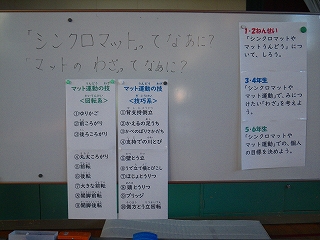 「シンクロマット」ってなあに?
「マットのわざ」ってなあに?
マット運動の技
<回転系>
①ゆりかご
②前ころがり
③後ろころがり
④丸太ころがり
⑤前転
⑥後転
⑦大きな前転
⑧開脚前転
⑨開脚後転
マット運動の技
<技巧系>
①背支持倒立
②かえるの足うち
③かべのぼりさかだち
④支持での川とび
⑤壁とう立
⑥うで立て横とびこし
⑦ほじょとうりつ
⑧頭とうりつ
⑨ブリッジ
⑩側方とう立回転
1・2ねんせい
「シンクロマットや
マットうんどう」に
ついて、しろう。
3・4年生
「シンクロマットや
マット運動」で、みにつ
けたい“わざ”を考えよ
う。
5・6年生
「シンクロマットや
マット運動」での、個人
の目標を決めよう。